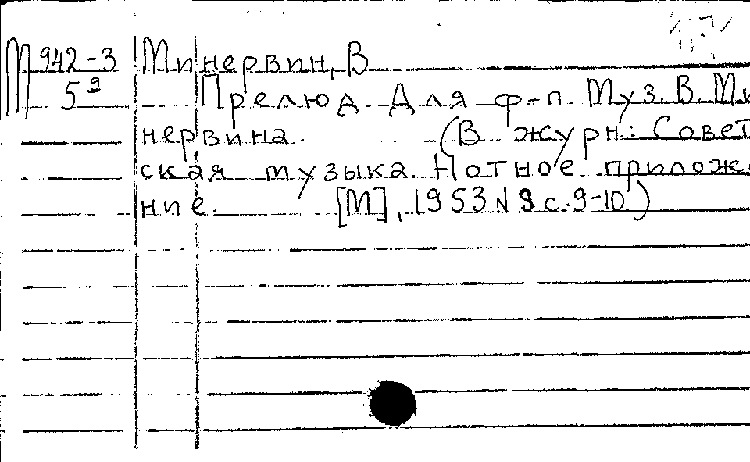 М 942-3 Минервин, В
5² Прелюд. Для ф-п. Муз. В. Ми
нервина. (В журн: Совет
ская музыка. Нотное прилож
ние. [М], 1953 № 9 с. 9-10)